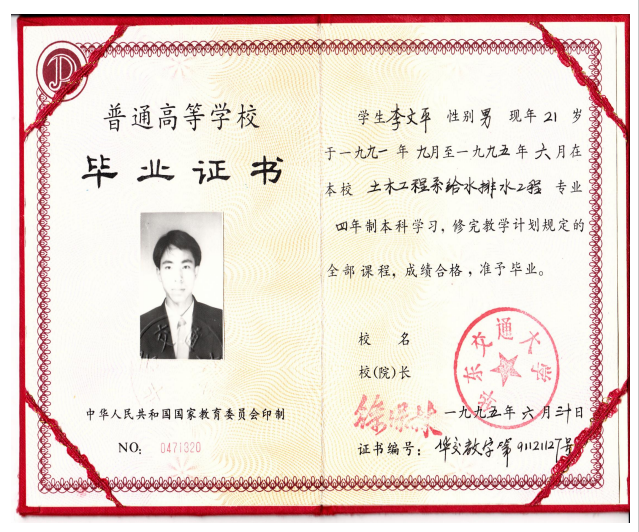 普通高等学校
毕业证书
中华人民共和国国家教育委员会印制
NO: 0471320
学生李文平 性别男 现年21岁
于一九九一年九月至一九九五年六月在
本校 土木工程系给水排水工程 专业
四年制本科学习，修完教学计划规定的
全部课程，成绩合格，准予毕业。
校 名
华东交通大学
校(院)长
一九九五年六月三十日
证书编号：华交教字第91121127号